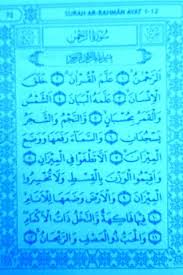 SURAH AR-RAHMAN AYAT 1-12
سُورَةُ الرَّحْمٰنِ
بِسْمِ اللَّهِ الرَّحْمٰنِ الرَّحِيمِ
الرَّحْمٰنُ ۝ عَلَّمَ الْقُرْاٰنَ ۝ خَلَقَ
الْإِنْسَانَ ۝ عَلَّمَهُ الْبَيَانَ ۝ الشَّمْسُ
وَالْقَمَرُ بِحُسْبَانٍ ۝ وَالنَّجْمُ وَالشَّجَرُ
يَسْجُدَانِ ۝ وَالسَّمَاءَ رَفَعَهَا وَوَضَعَ
الْمِيزَانَ ۝ أَلَّا تَطْغَوْا فِي الْمِيزَانِ ۝
وَأَقِيمُوا الْوَزْنَ بِالْقِسْطِ وَلَا تُخْسِرُوا
الْمِيزَانَ ۝ وَالْأَرْضَ وَضَعَهَا لِلْأَنَامِ
۝ فِيهَا فَاكِهَةٌ وَالنَّخْلُ ذَاتُ الْأَكْمَامِ
۝ وَالْحَبُّ ذُو الْعَصْفِ وَالرَّيْحَانُ ۝